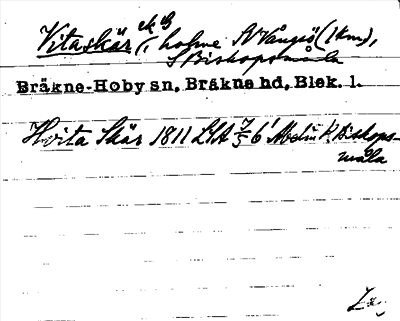 Vitaskär, holme SV Vångsö (1 km),
S Bishopsmåla
Bräkne-Hoby sn, Bräkne hd, Blek. l.
Hvita Skär 1811 LSA 7/5 6' Bishops-
måla